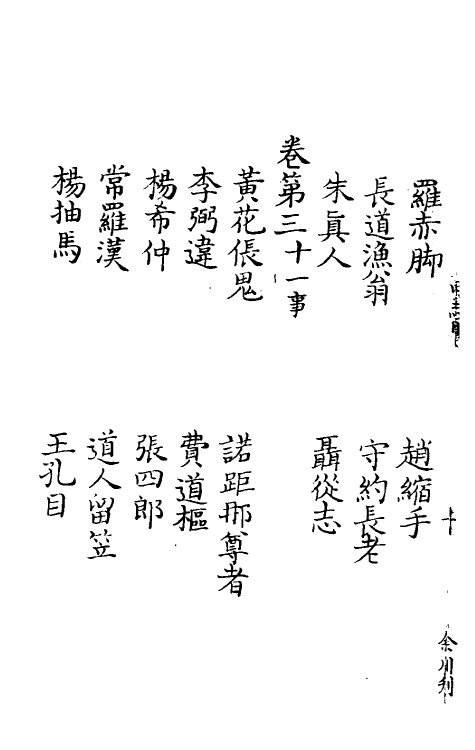 羅赤脚　趙縮手
長道漁翁　守約長老
朱眞人　聶從志
卷第三十一事
黃花倀鬼　諾距那尊者
李弼違　費道樞
楊希仲　張四郎
常羅漢　道人留笠
楊抽馬　王孔目